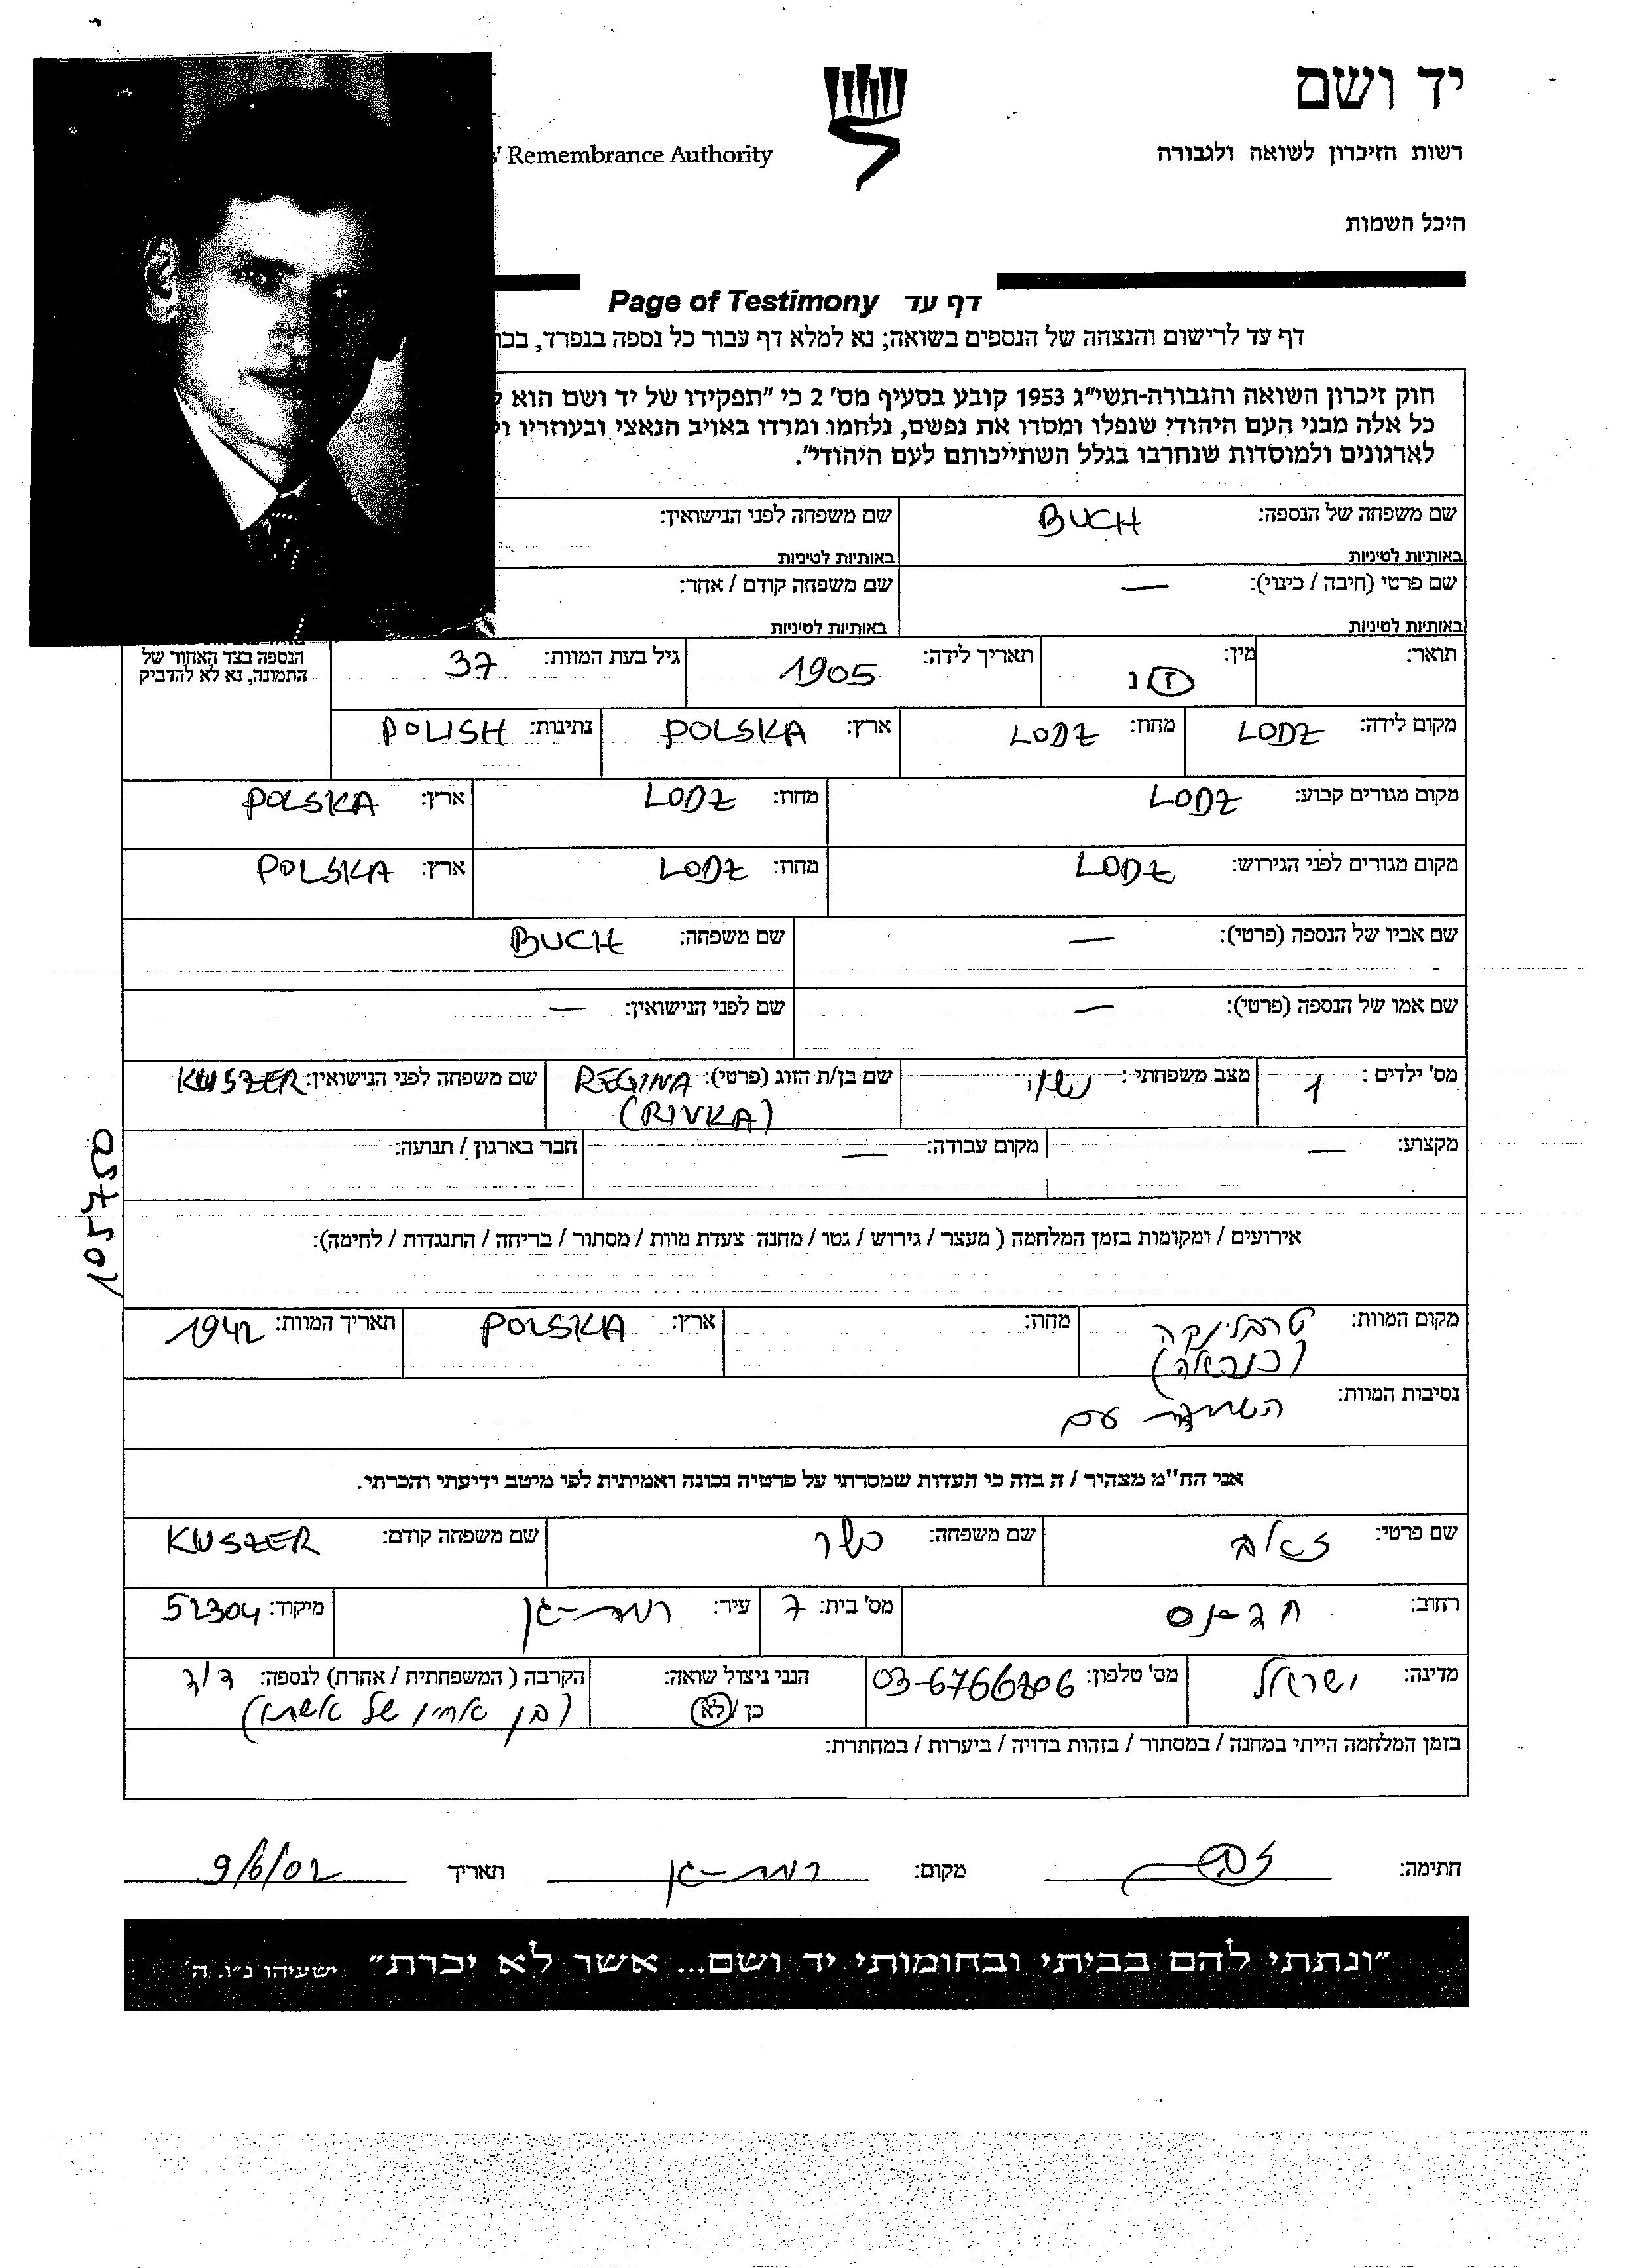 יד ושם
רשות הזיכרון לשואה ולגבורה
' Remembrance Authority
היכל השמות
דף עד Page of Testimony
דף עד לרישום והנצחה של הנספים בשואה; נא למלא דף עבור כל נספה בנפרד,
חוק זיכרון השואה והגבורה-תשי״ג 1953 קובע בסעיף מס׳ 2 כי ״תפקידו של יד ושם הוא
כל אלה מבני העם היהודי שנפלו ומסרו את נפשם, נלחמו ומרדו באויב הנאצי ובעוזריו
לארגונים ולמוסדות שנחרבו בגלל השתייכותם לעם היהודי״.
שם משפחה של הנספה: BUCH שם משפחה לפני הנישואין:
באותיות לטיניות באותיות לטיניות
שם פרטי (חיבה / כינוי): — שם משפחה קודם / אחר:
באותיות לטיניות באותיות לטיניות
תואר: מין: ז נ תאריך לידה: 1905 גיל בעת המוות: 37
הנספה בצד האחור של
התמונה, נא לא להדביק
מקום לידה: LODZ מחוז: LODZ ארץ: POLSKA נתינות: POLISH
מקום מגורים קבוע: LODZ מחוז: LODZ ארץ: POLSKA
מקום מגורים לפני הגירוש: LODZ מחוז: LODZ ארץ: POLSKA
שם אביו של הנספה (פרטי): — שם משפחה: BUCH
שם אמו של הנספה (פרטי): — שם לפני הנישואין: —
מס' ילדים: 1 מצב משפחתי: נשוי שם בן/ת הזוג (פרטי): REGINA שם משפחה לפני הנישואין: KUSZER
(RIVKA)
מקצוע: — מקום עבודה: — חבר בארגון / תנועה:
105750
אירועים / ומקומות בזמן המלחמה ( מעצר / גירוש / גטו / מחנה צעדת מוות / מסתור / בריחה / התנגדות / לחימה):
מקום המוות: טרבלינקה מחוז: ארץ: POLSKA תאריך המוות: 1942
(כנראה)
נסיבות המוות:
עם
אני הח"מ מצהיר / ה בזה כי העדות שמסרתי על פרטיה נכונה ואמיתית לפי מיטב ידיעתי והכרתי.
שם פרטי: זאב שם משפחה: כשר שם משפחה קודם: KUSZER
רחוב: מס' בית: 7 עיר: רמת-גן מיקוד: 52304
מדינה: ישראל מס' טלפון: 03-6766806 הנני ניצול שואה: הקרבה ( המשפחתית / אחרת) לנספה: דוד
כן / לא (בן אחיו של אשתו)
בזמן המלחמה הייתי במחנה / במסתור / בזהות בדויה / ביערות / במחתרת:
חתימה: מקום: רמת-גן תאריך 9/6/02
״ונתתי להם בביתי ובחומותי יד ושם... אשר לא יכרת״ ישעיהו נ״ו, ה'